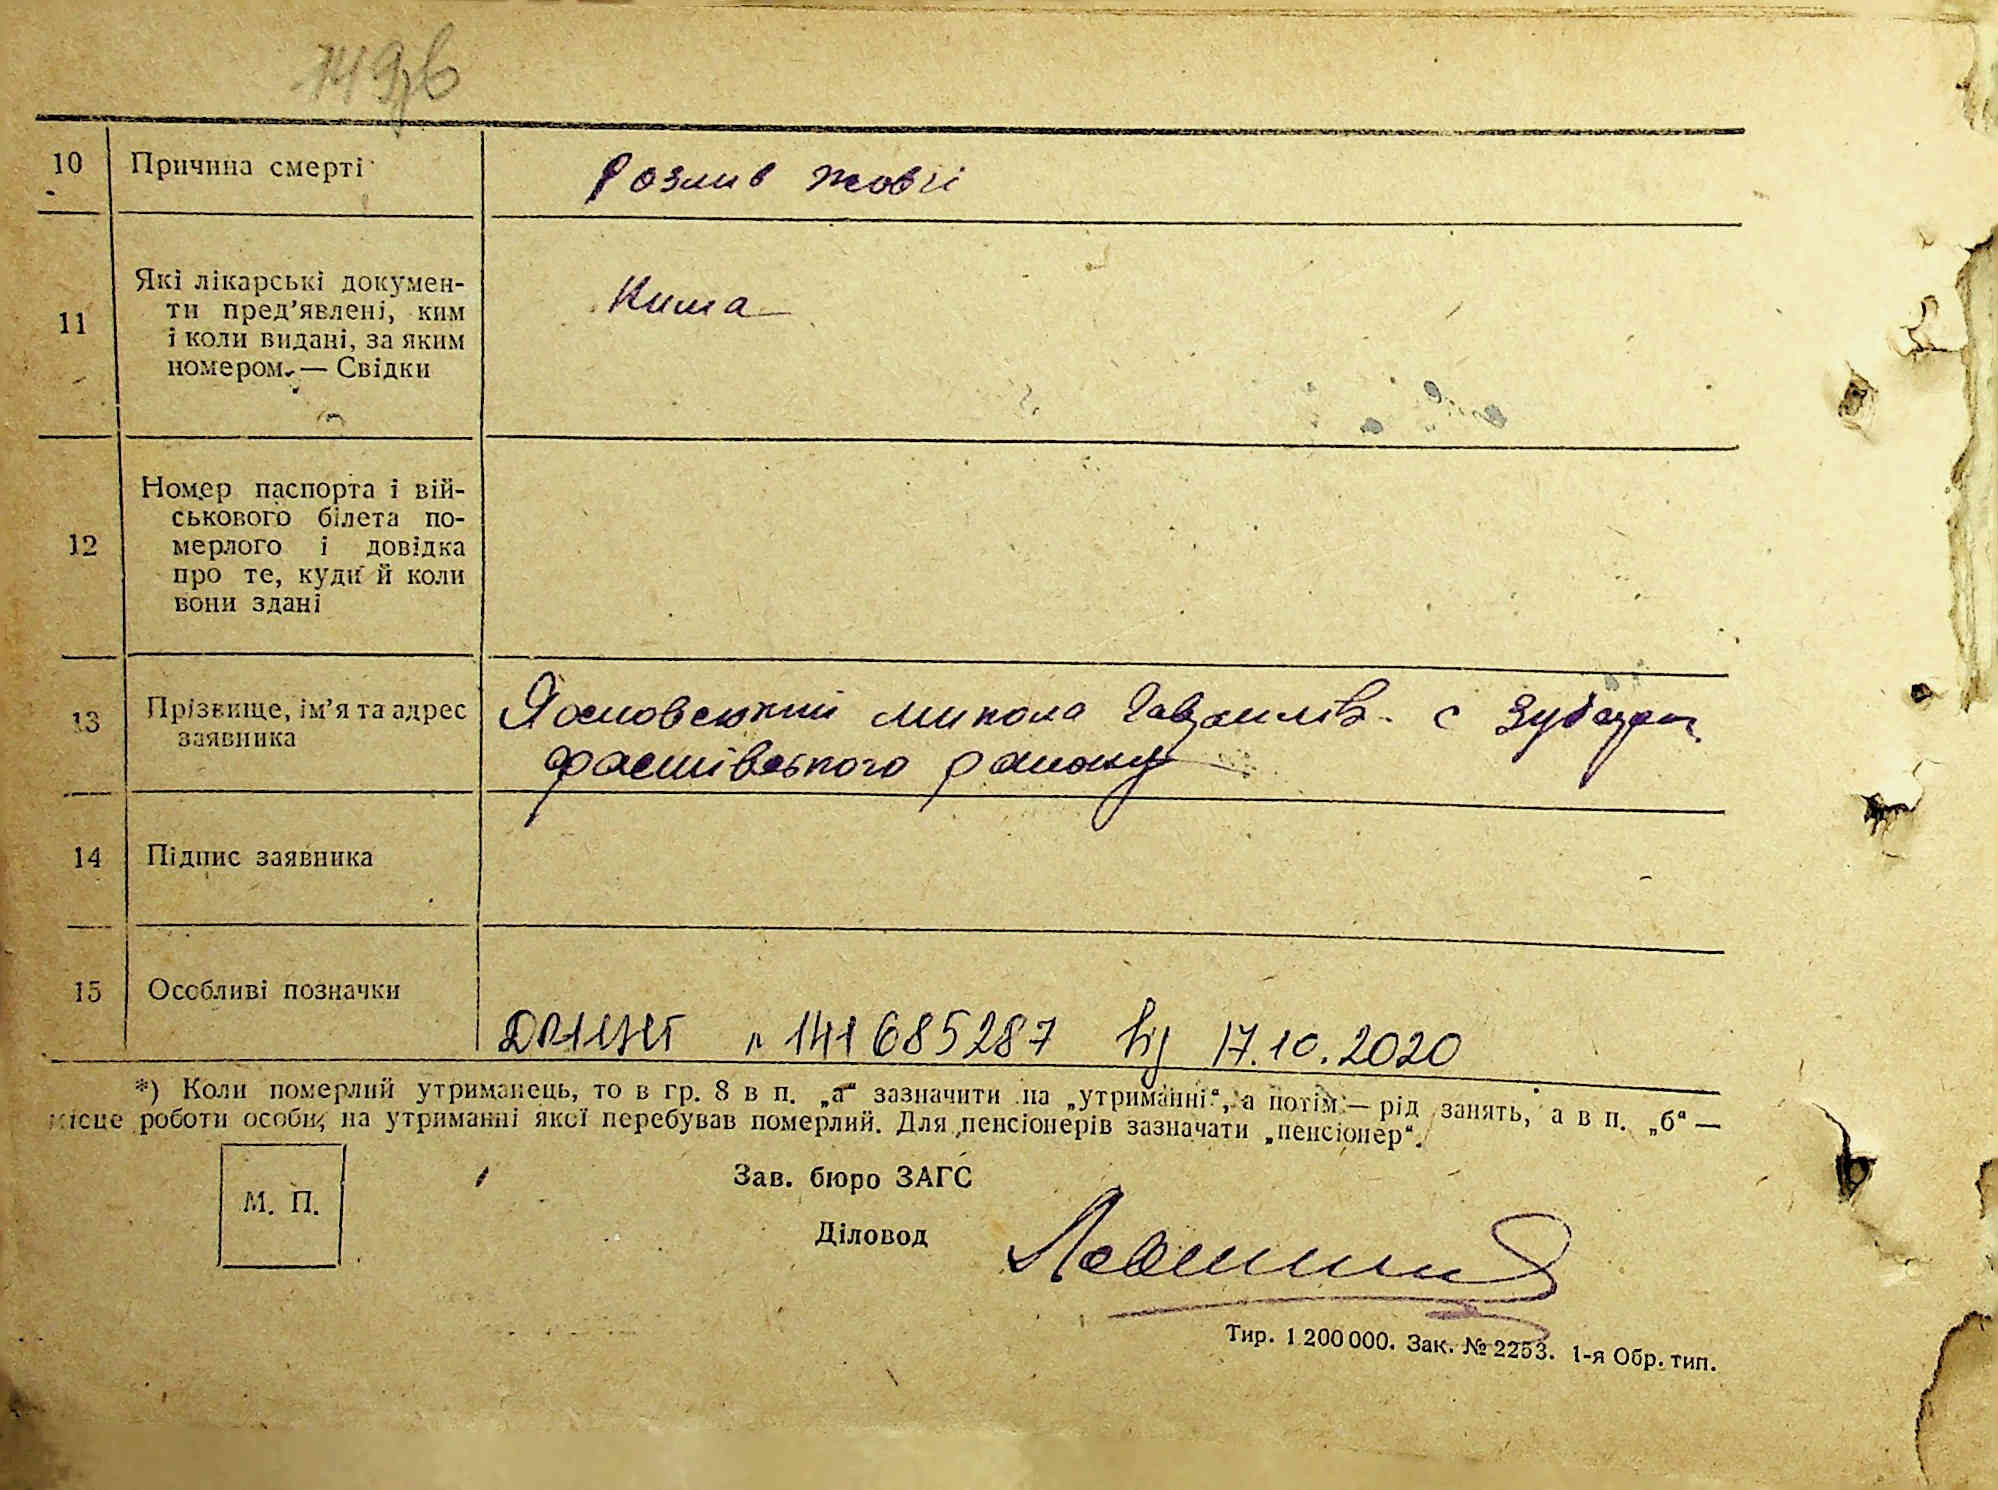 10 Причина смерті Розлив жовчі
11 Які лікарські докумен-
ти пред’явлені, ким
і коли видані, за яким
номером. — Свідки
12 Номер паспорта і вій-
ськового білета по-
мерлого і довідка
про те, куди й коли
вони здані
13 Прізвище, ім’я та адрес
заявника
Ясновський Микола с
фастівського району
14 Підпис заявника
15 Особливі позначки
141685287 17.10.2020
*) Коли померлий утриманець, то в гр. 8 в п. „а“ зазначити на „утриманні“, а потім — рід занять, а в п. „б“ —
місце роботи особи, на утриманні якої перебував померлий. Для пенсіонерів зазначати „пенсіонер“.
М. П.
Зав. бюро ЗАГС
Діловод
Тир. 1 200 000. Зак. № 2253. 1-я Обр. тип.